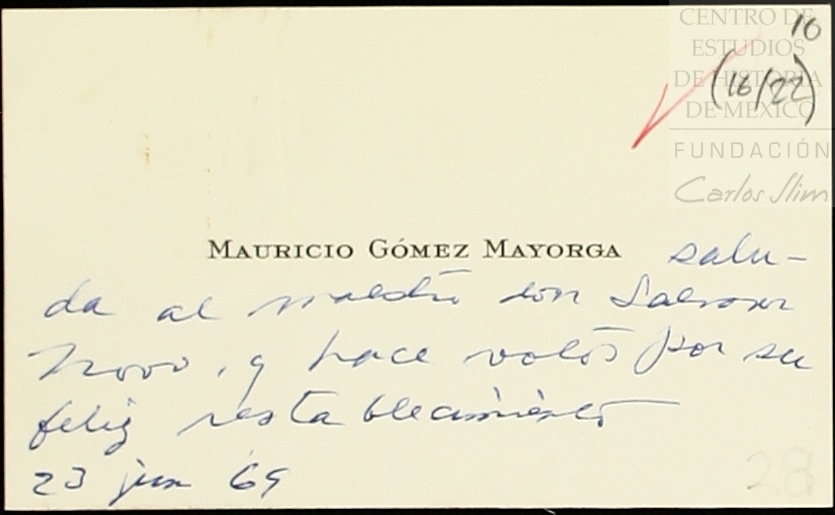 CENTRO DE
ESTUDIOS
DE HISTORIA
DE MÉXICO
FUNDACIÓN
Carlos Slim
10
(16/22)
MAURICIO GÓMEZ MAYORGA salu-
da al maestro don Salvador
Novo, y hace votos por su
feliz restablecimiento
23 jun 69
28